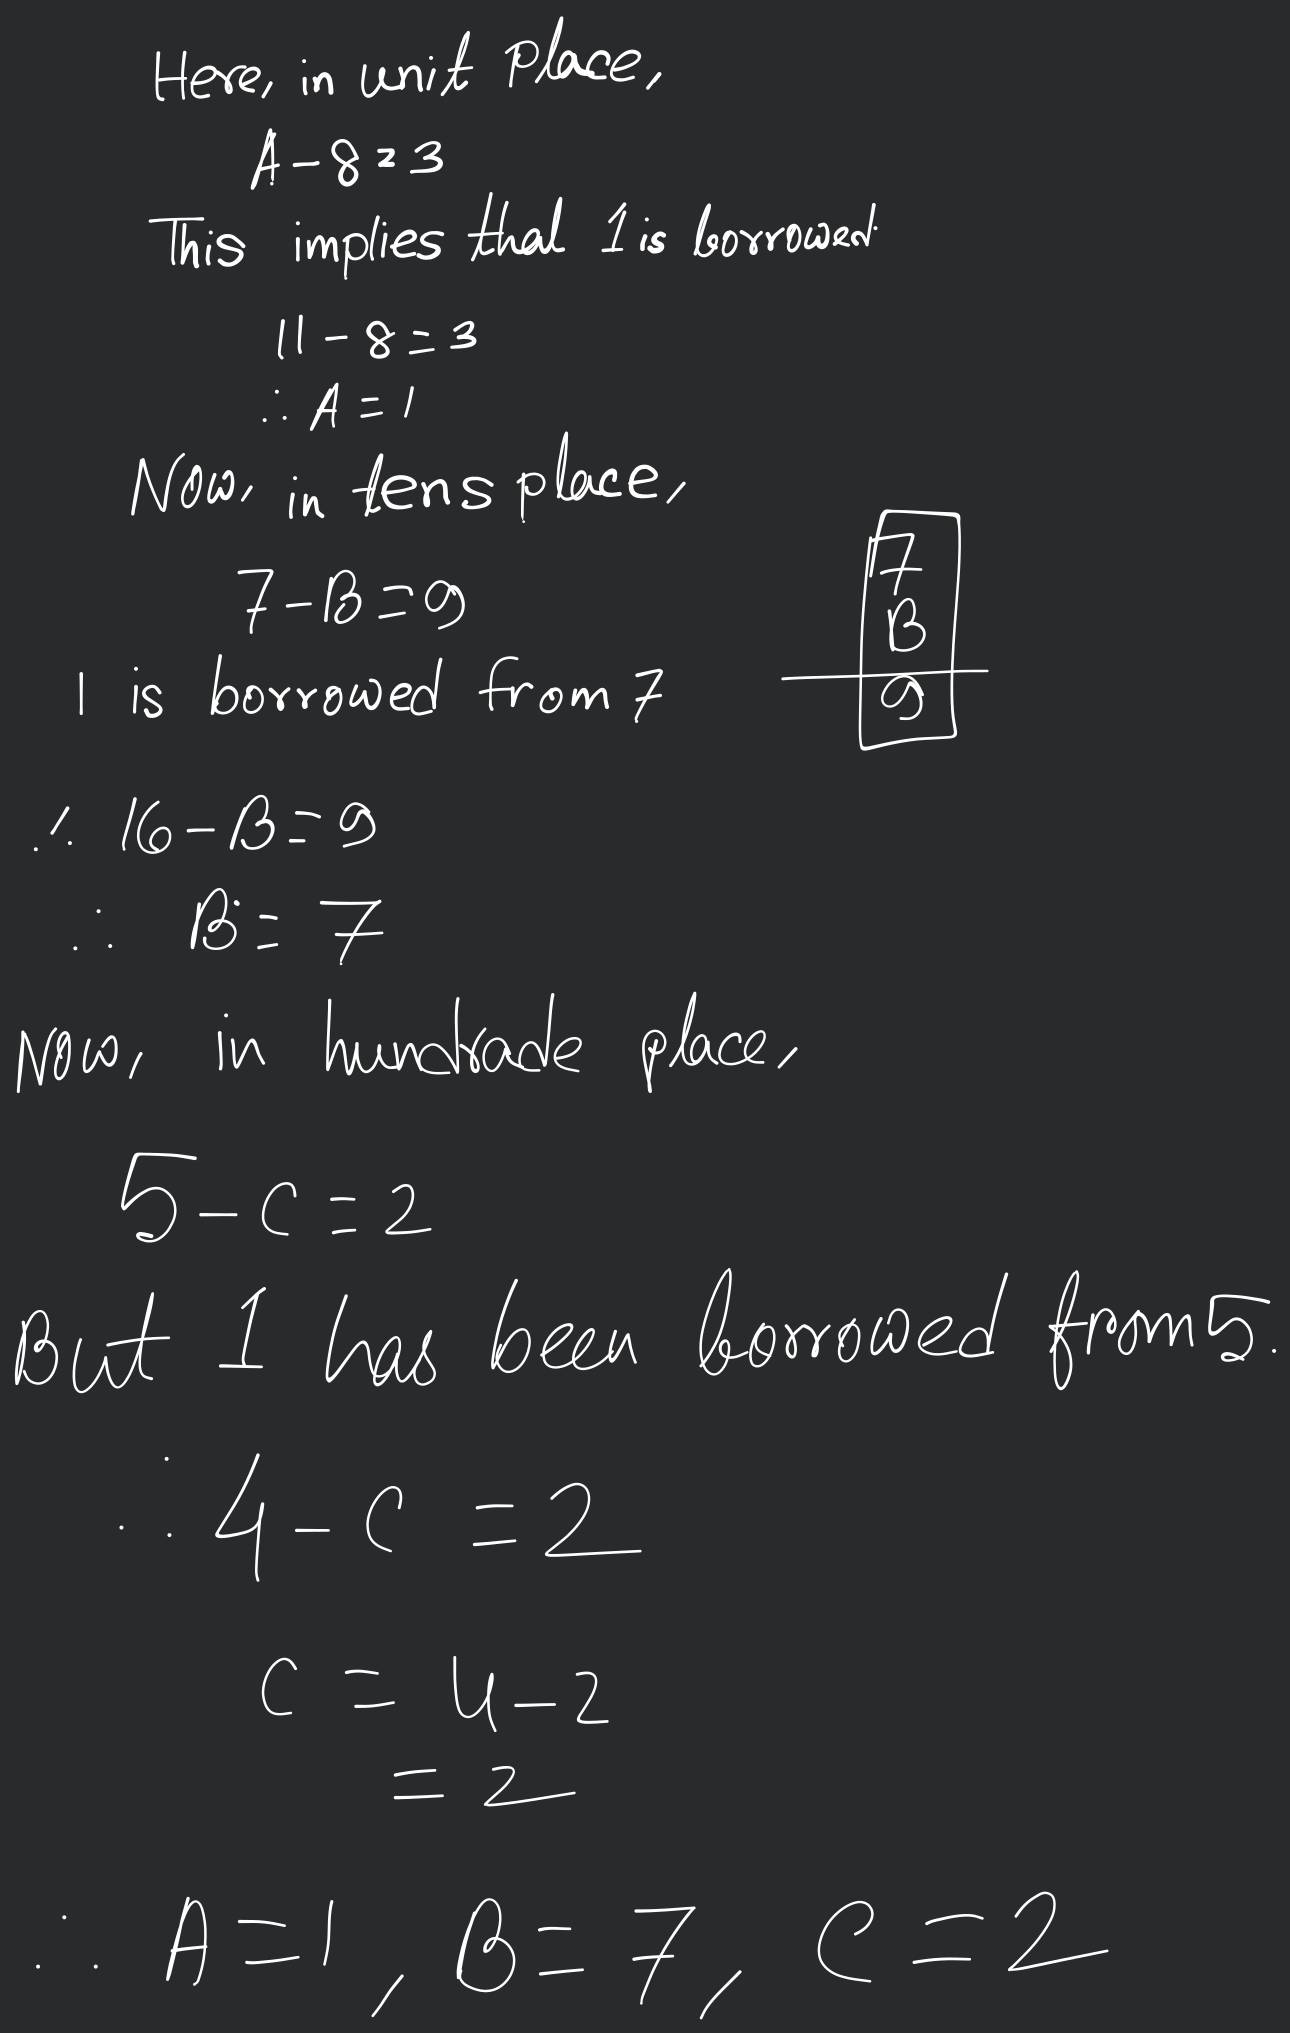 Here, in unit place,
A-8=3
This implies that 1 is borrowed.
11-8=3
∴ A=1
Now, in tens place,
7-B=9
7
B
9
1 is borrowed from 7
∴ 16-B=9
∴ B=7
Now, in hundrade place,
5-C=2
But 1 has been borrowed from 5.
∴ 4-C=2
C=4-2
=2
∴ A=1, B=7, C=2